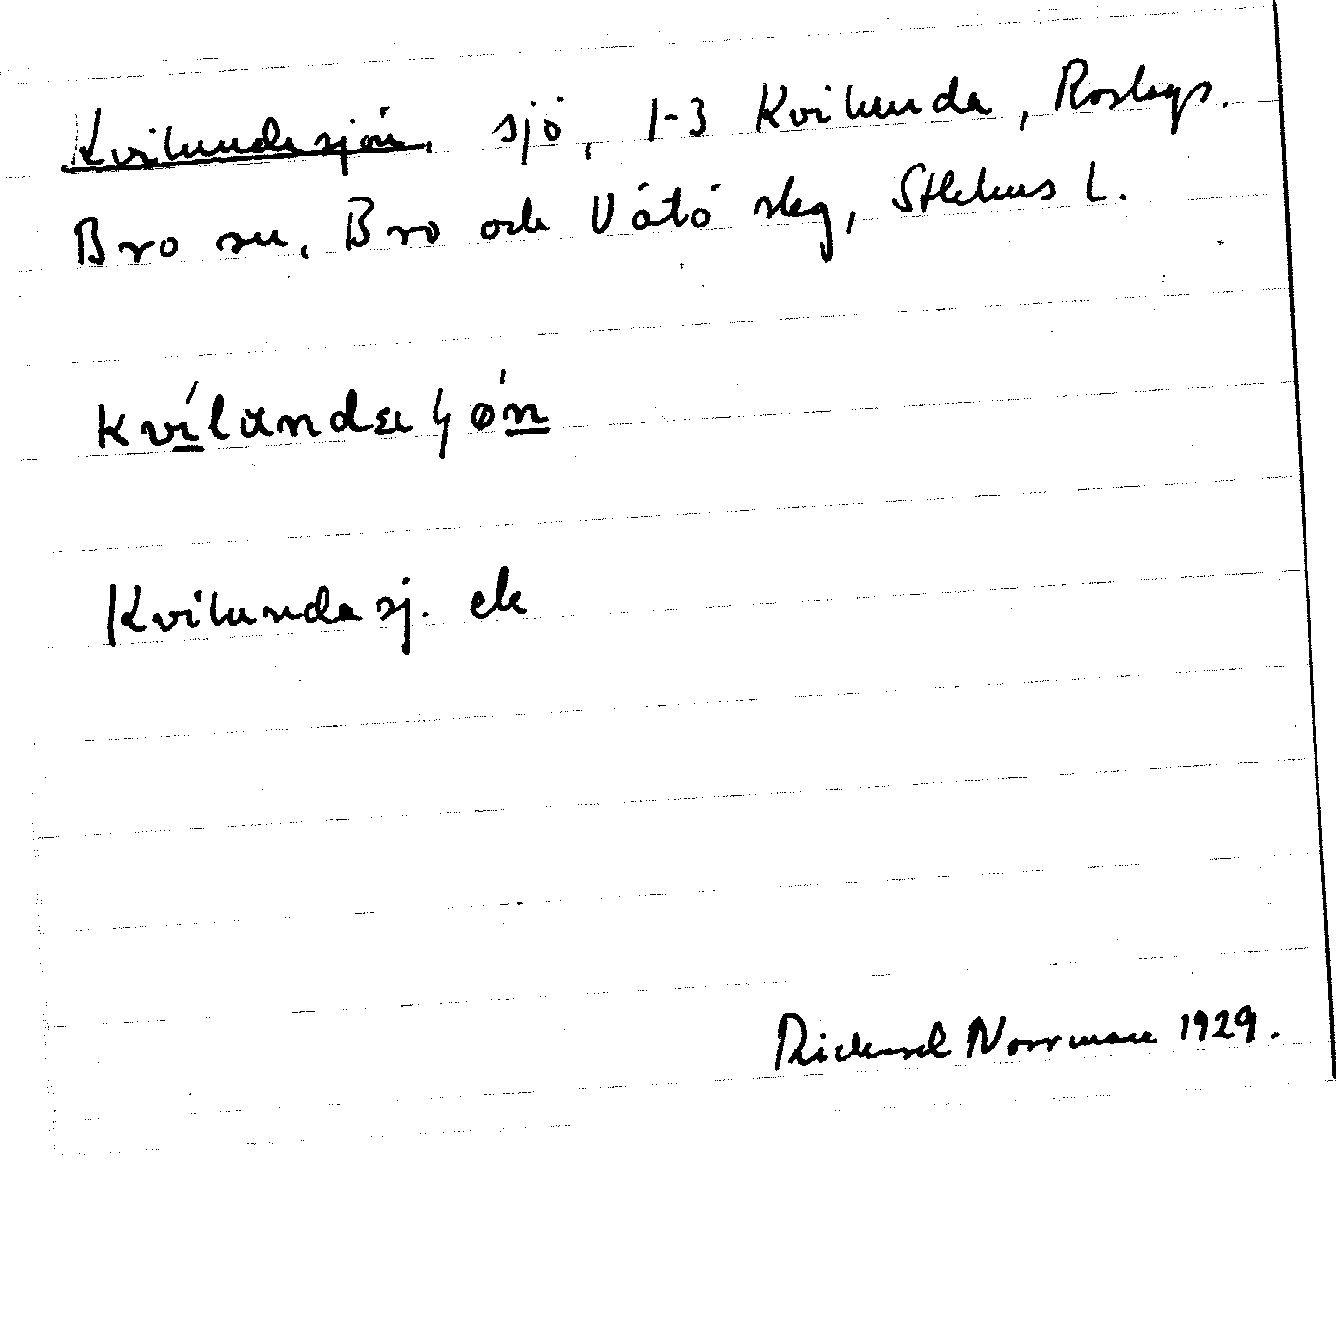 Kvilundasjön, sjö, 1-3 Kvilunda, Roslags.
Bro sn, Bro och Vätö skg, Sthlms L.
Kvilunda sj. ek
Rickard Norrman 1929.